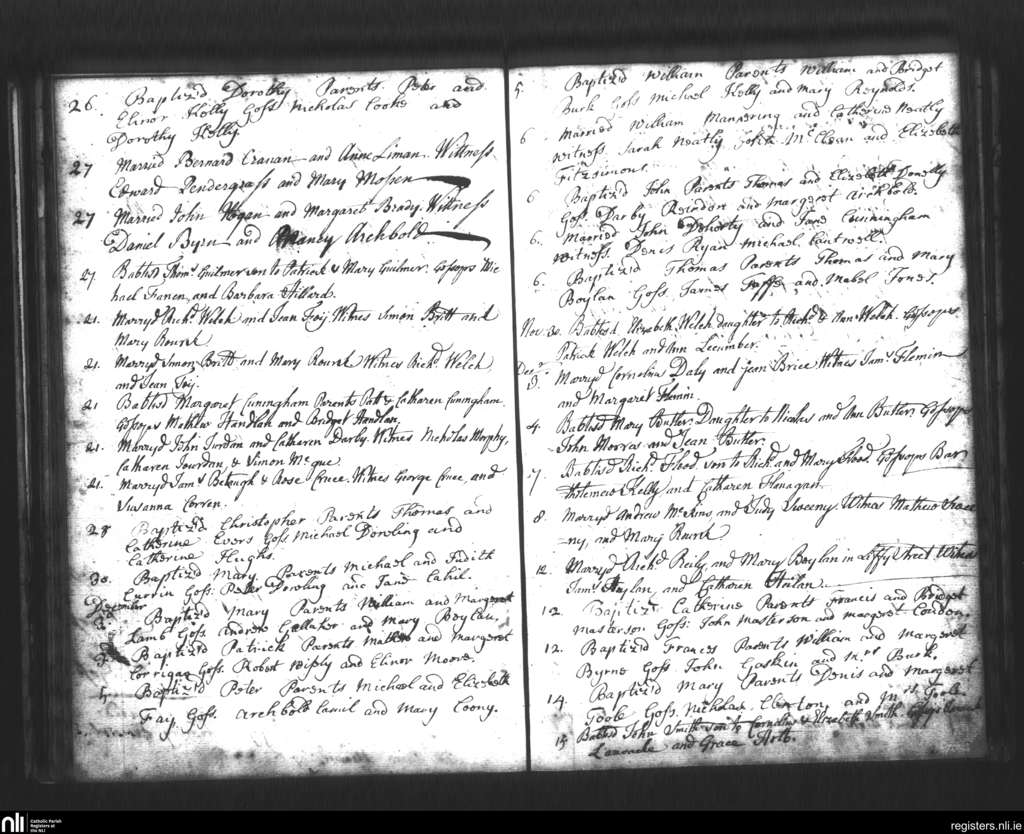 26. Baptiz'd Dorothy Parents Peter and
Elinor Kelly Goss Nicholas Cooke and
Dorothy Kelly
27 Married Bernard Cranan and Anne Liman. Wittness
Edward Pendergrass and Mary Mosen
27 Married John Hogan and Margaret Brady Wittness
Daniel Byrn and Nancy Archbold
27. Babtisd Thoms. Guilmer son to Patrick & Mary Guilmer. Gossops Mic
hael and Barbara Hillard.
21. Marryd Richd. Welch and Jean Foy. Witnes Simon Britt and
Mary Rourk
21. Marryd Simon Britt and Mary Rourk Witnes Richd. Welch
and Jean Foy.
21 Babtisd Margaret Cuningham Parents Patt & Catharen Cuningham
Gossops Mathew Handlan and Bridget Handlan,
21. Marryd John Jurdan and Catharen Darby Witnes Nicholas Morphy,
Catharen Jourdan, & Simon Mcgue
21. Marryd Jams. & Rose Cruce. Witnes George Cruce, and
Susanna Corren.
28 Baptiz'd Christopher Parents Thomas and
Catherine Evers Goss Michael Dowling and
Catherine Hughs.
30. Baptiz'd Mary. Parents Michael and Judith
Currin Goss: Peter Dowling and Jane Cahil.
December
Baptiz'd Mary Parents William and Margaret
Lamb Goss. Andrew Gallaher and Mary Boylan.
Baptiz'd Patrick Parents Mathew and Margaret
Corrigan Goss. Robert and Elinor Moore.
5 Baptiz'd Peter Parents Michael and Elizabeth
Fay. Goss. Archbold and Mary Coony.
5. Baptiz'd William Parents William and Bridget
Burk Goss Michael Kelly and Mary Reynolds.
6 Married William Mannering and Catherine Neatly
witness Sarah Neatly John McClean and Elizabeth
Fitzsimons.
6 Baptiz'd John Parents Thomas and Elizabeth Donelly
Goss Darby and Margeret Archbold.
6. Married John Doherty and Jane Cunningham
witness. Denis Ryan Michael Cantwell.
6. Baptiz'd Thomas Parents Thomas and Mary
Boylan Goss. James and Mabel Jones.
Nov. 30. Babtisd Elizabeth Welch daughter to Richd. & Ann Welch. Gossops
Patrick Welch and Ann
Decr.
3. Marryd Cornelius Daly and Jean Brice Witnes Jams. Flemin
and Margaret Flemin.
4. Babtisd Mary Butler Daughter to Nicolas and Ann Butler. Gossops
John Morras and Jean Butler.
7. Babtisd Richd. Flood son to Richd. and Mary Flood Gossops Bar
tholemew Kelly and Catharen Flanagan.
8. Marryd Andrew and Judy Sweeny. Witnes Mathew
ny, and Mary Rourk
12. Marryd Richd. Reily, and Mary Boylan in Liffy Street Witnes
Jams. Boylan, and Catharen
12. Baptiz'd Catherine Parents Francis and Bridget
Masterson Goss: John Masterson and Margret London.
12. Baptiz'd Frances Parents William and Margeret
Byrne Goss John Gaskin and Mrs Burk.
14. Baptiz'd Mary Parents Denis and Margeret
Toole Goss. Nicholas and Mrs. Toole
15 Babtisd John Smith son to Cornelius & Elizabeth Smith.
and Grace
nli
Catholic Parish
Registers at
the NLI
registers.nli.ie